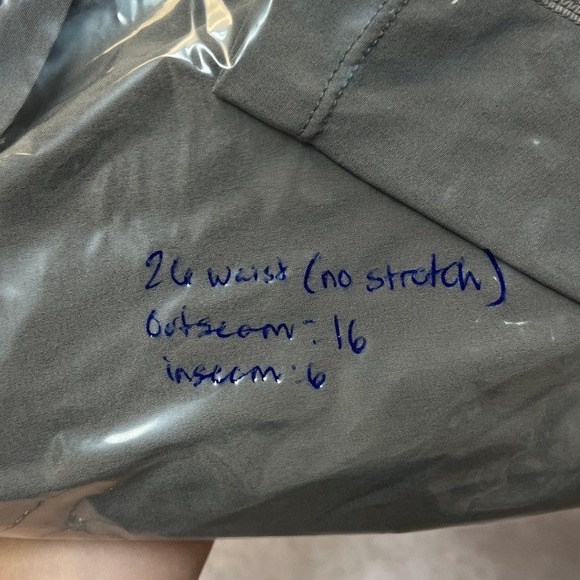 26 waist (no stretch)
Outseam: 16
inseam: 6